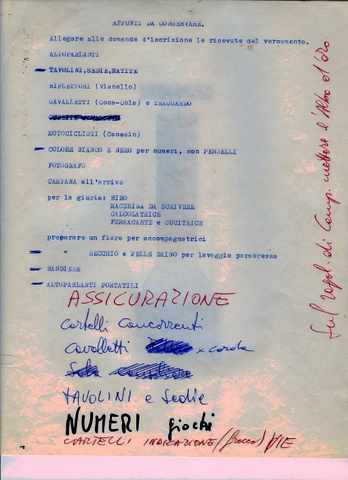 APPUNTI DA CONSERVARE.
Allegare alle domande d'iscrizione le ricevute del versamento.
ALTOPARLANTI
TAVOLINI,SEDIE,MATITE
RIFLETTORI (Vianello)
CAVALLETTI (Coca-Cola) e TRAGUARDO
MOTOCICLISTI
COLORE BIANCO E NERO per numeri, con PENNELLI
FOTOGRAFO
CAMPANA all'arrivo
per la giuria: BIRO
MACCHINA DA SCRIVERE
CALCOLATRICE
FERMACARTE e CUCITRICE
preparare un fiore per accompagnatrici
SECCHIO e PELLE DAINO per lavaggio parabrezza
BANDIERE
ALTOPARLANTI PORTATILI
ASSICURAZIONE
Cartelli Concorrenti
Cavalletti x corda
TAVOLINI e Sedie
NUMERI giochi
CARTELLI INDICAZIONE/(frecce)/VIE
Sul regol. di Camp. mettere l'Albo d'oro